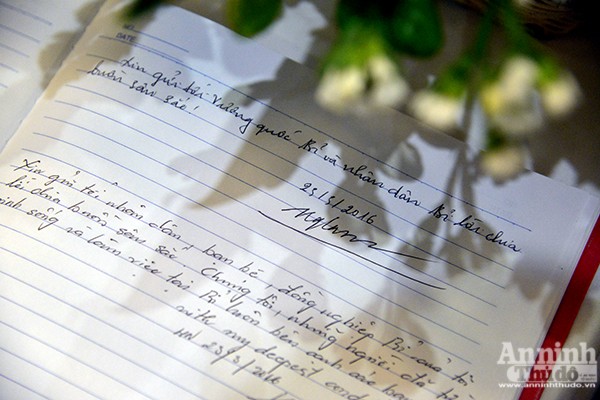 NO.
DATE
Xin gửi tới Vương quốc Bỉ và nhân dân Bỉ lời chia
buồn sâu sắc!
23/3/2016
Xin gửi tới nhân dân, bạn bè, đồng nghiệp Bỉ của tôi
lời chia buồn sâu sắc. Chúng tôi, những người đã từng
sinh sống và làm việc tại Bỉ luôn bên cạnh các bạn
with my deepest cond
HN 23/3/2016
An ninh
Thủ đô
www.anninhthudo.vn